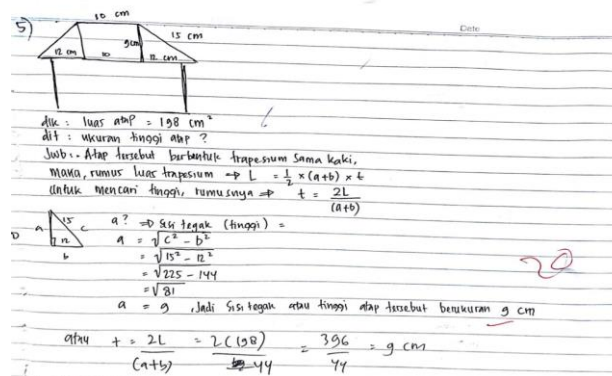 Date
5)
10 cm
15 cm
9cm
12 cm
10
12 cm
dik : luas atap = 198 cm²
dit : ukuran tinggi atap ?
Jwb : Atap tersebut berbentuk trapesium sama kaki,
maka, rumus luas trapesium ⇒ L = 1/2 × (a+b) × t
Untuk mencari tinggi, rumusnya ⇒ t = 2L/(a+b)
a 15 c
12
b
a? ⇒ sisi tegak (tinggi) =
a = √c² - b²
= √15² - 12²
= √225 - 144
= √81
a = 9 , Jadi sisi tegak atau tinggi atap tersebut berukuran 9 cm
20
atau t = 2L/(a+b) = 2(198)/44 = 396/44 = 9 cm